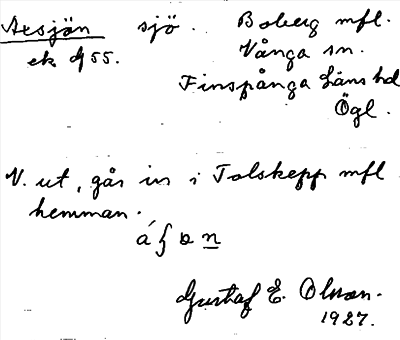 Axsjön sjö. Boberg mfl.
ek df 55. Vånga sn.
Finspånga Läns hd
Ögl.
V. ut, går in i Tolskepp mfl
hemman.
Gustaf E. Olsson.
1927.